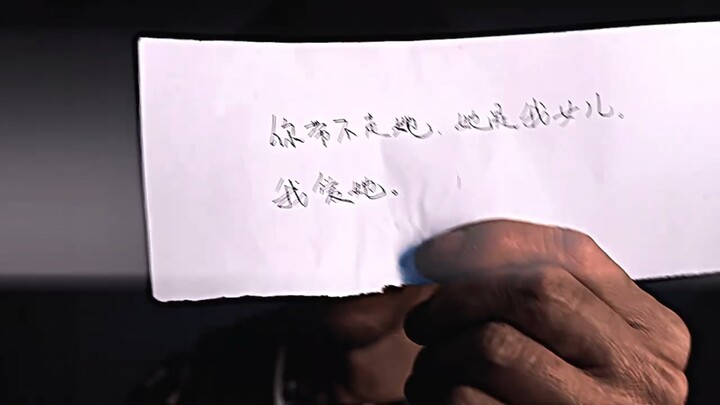 你带不走她、她是我女儿。
我爱她。